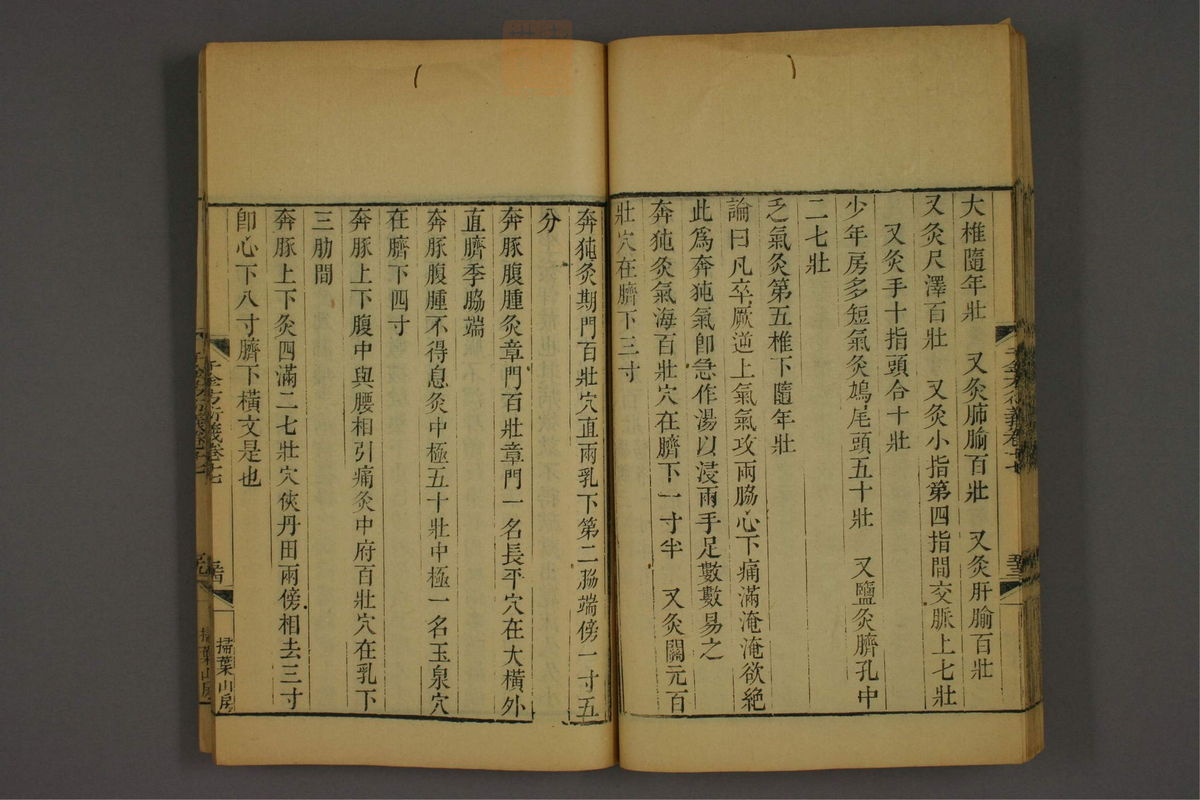 大椎隨年壯　又灸肺腧百壯　又灸肝腧百壯
又灸尺澤百壯　又灸小指第四指間交脈上七壯
又灸手十指頭合十壯
少年房多短氣灸鳩尾頭五十壯　又鹽灸臍孔中
二七壯
乏氣灸第五椎下隨年壯
論曰凡卒厥逆上氣氣攻兩脇心下痛滿淹淹欲絕
此爲奔㹠氣卽急作湯以浸兩手足數數易之
奔㹠灸氣海百壯穴在臍下一寸半　又灸關元百
壯穴在臍下三寸
奔㹠灸期門百壯穴直兩乳下第二肋端傍一寸五
分
奔豚腹腫灸章門百壯章門一名長平穴在大橫外
直臍季脇端
奔豚腹腫不得息灸中極五十壯中極一名玉泉穴
在臍下四寸
奔豚上下腹中與腰相引痛灸中府百壯穴在乳下
三肋間
奔豚上下灸四滿二七壯穴俠丹田兩傍相去三寸
卽心下八寸臍下橫文是也
千金方衍義卷十七
掃葉山房